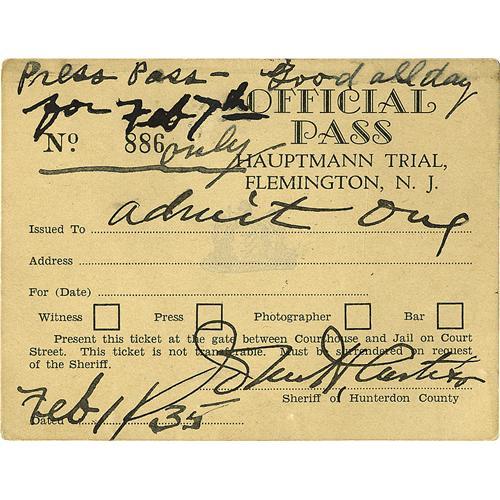 Press Pass - Good all day
for Feb 7th
only
OFFICIAL
PASS
Nº 886
HAUPTMANN TRIAL,
FLEMINGTON, N. J.
Issued To admit One
Address
For (Date)
Witness Press Photographer Bar
Present this ticket at the gate between Courthouse and Jail on Court
Street. This ticket is not transferable. Must be surrendered on request
of the Sheriff.
John H. Curtiss
Sheriff of Hunterdon County
Dated Feb 1/35